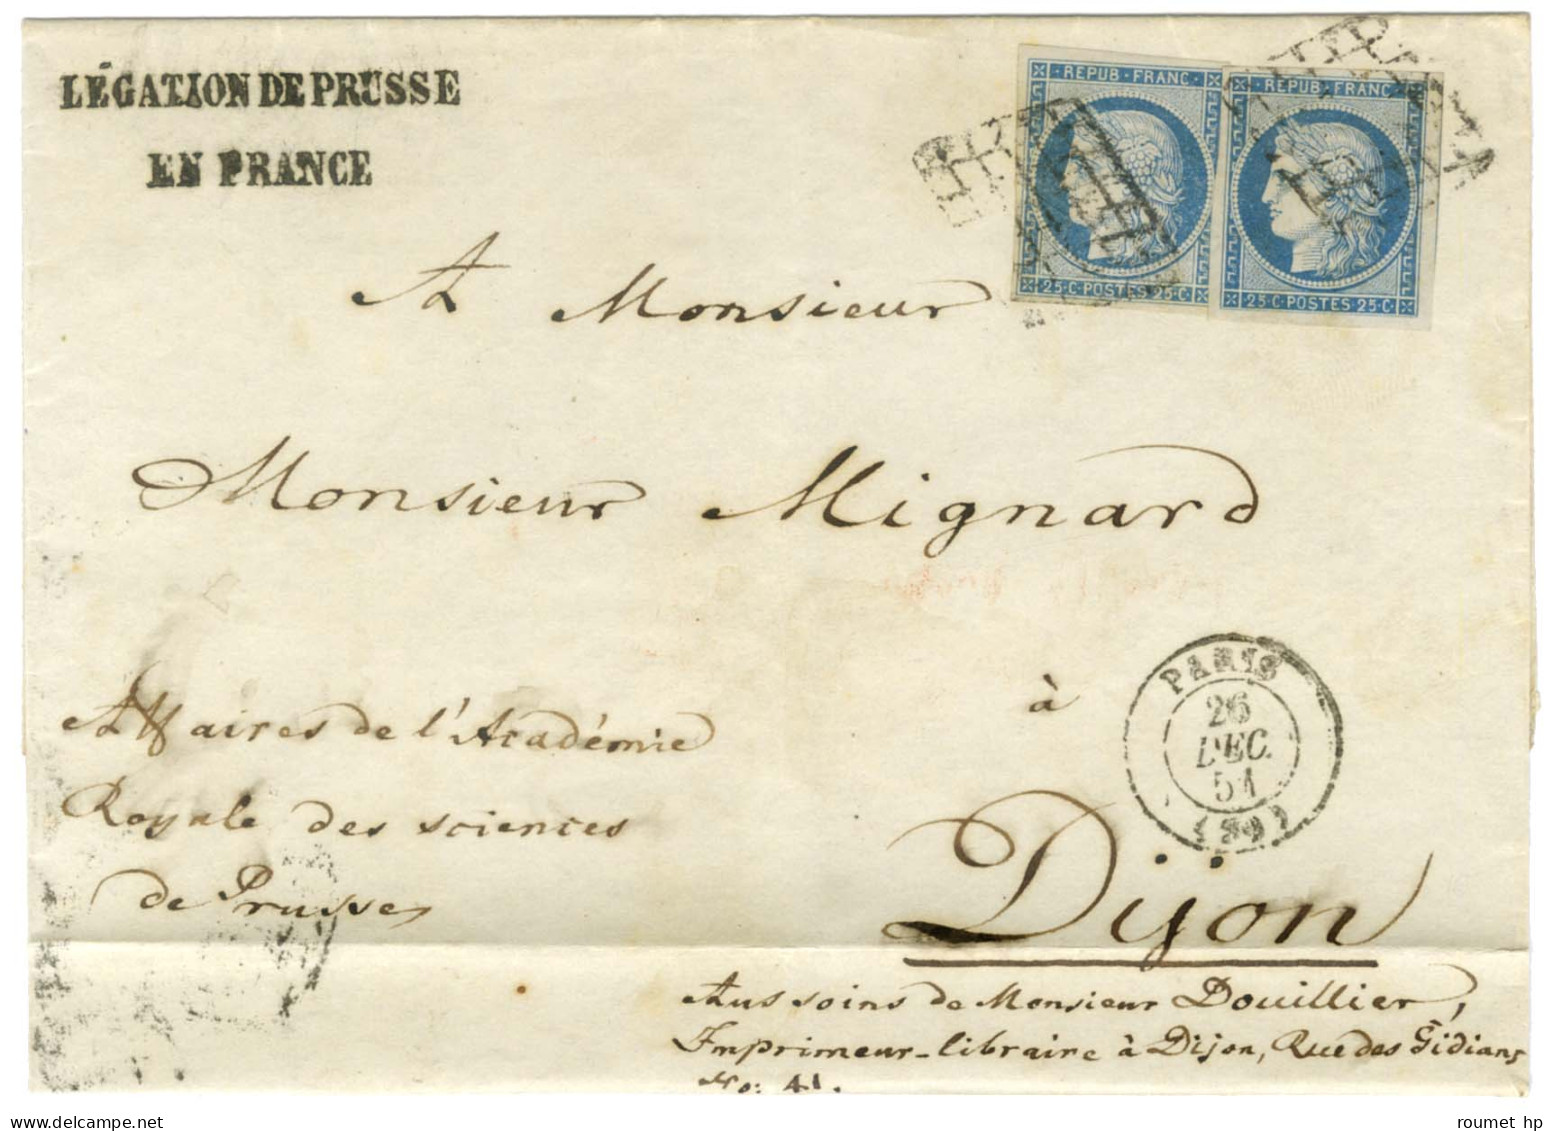 LÉGATION DE PRUSSE
EN FRANCE
REPUB · FRANC
25 · C · POSTES 25 · C ·
REPUB · FRANC
25 · C · POSTES 25 · C ·
A Monsieur
Monsieur Mignard
à
PARIS
26
DEC.
51
Affaires de l'Académie
Royale des sciences
de Prusse
Dijon
Aux soins de Monsieur Douillier,
Imprimeur-libraire à Dijon, Rue des
No: 41.
roumet hp